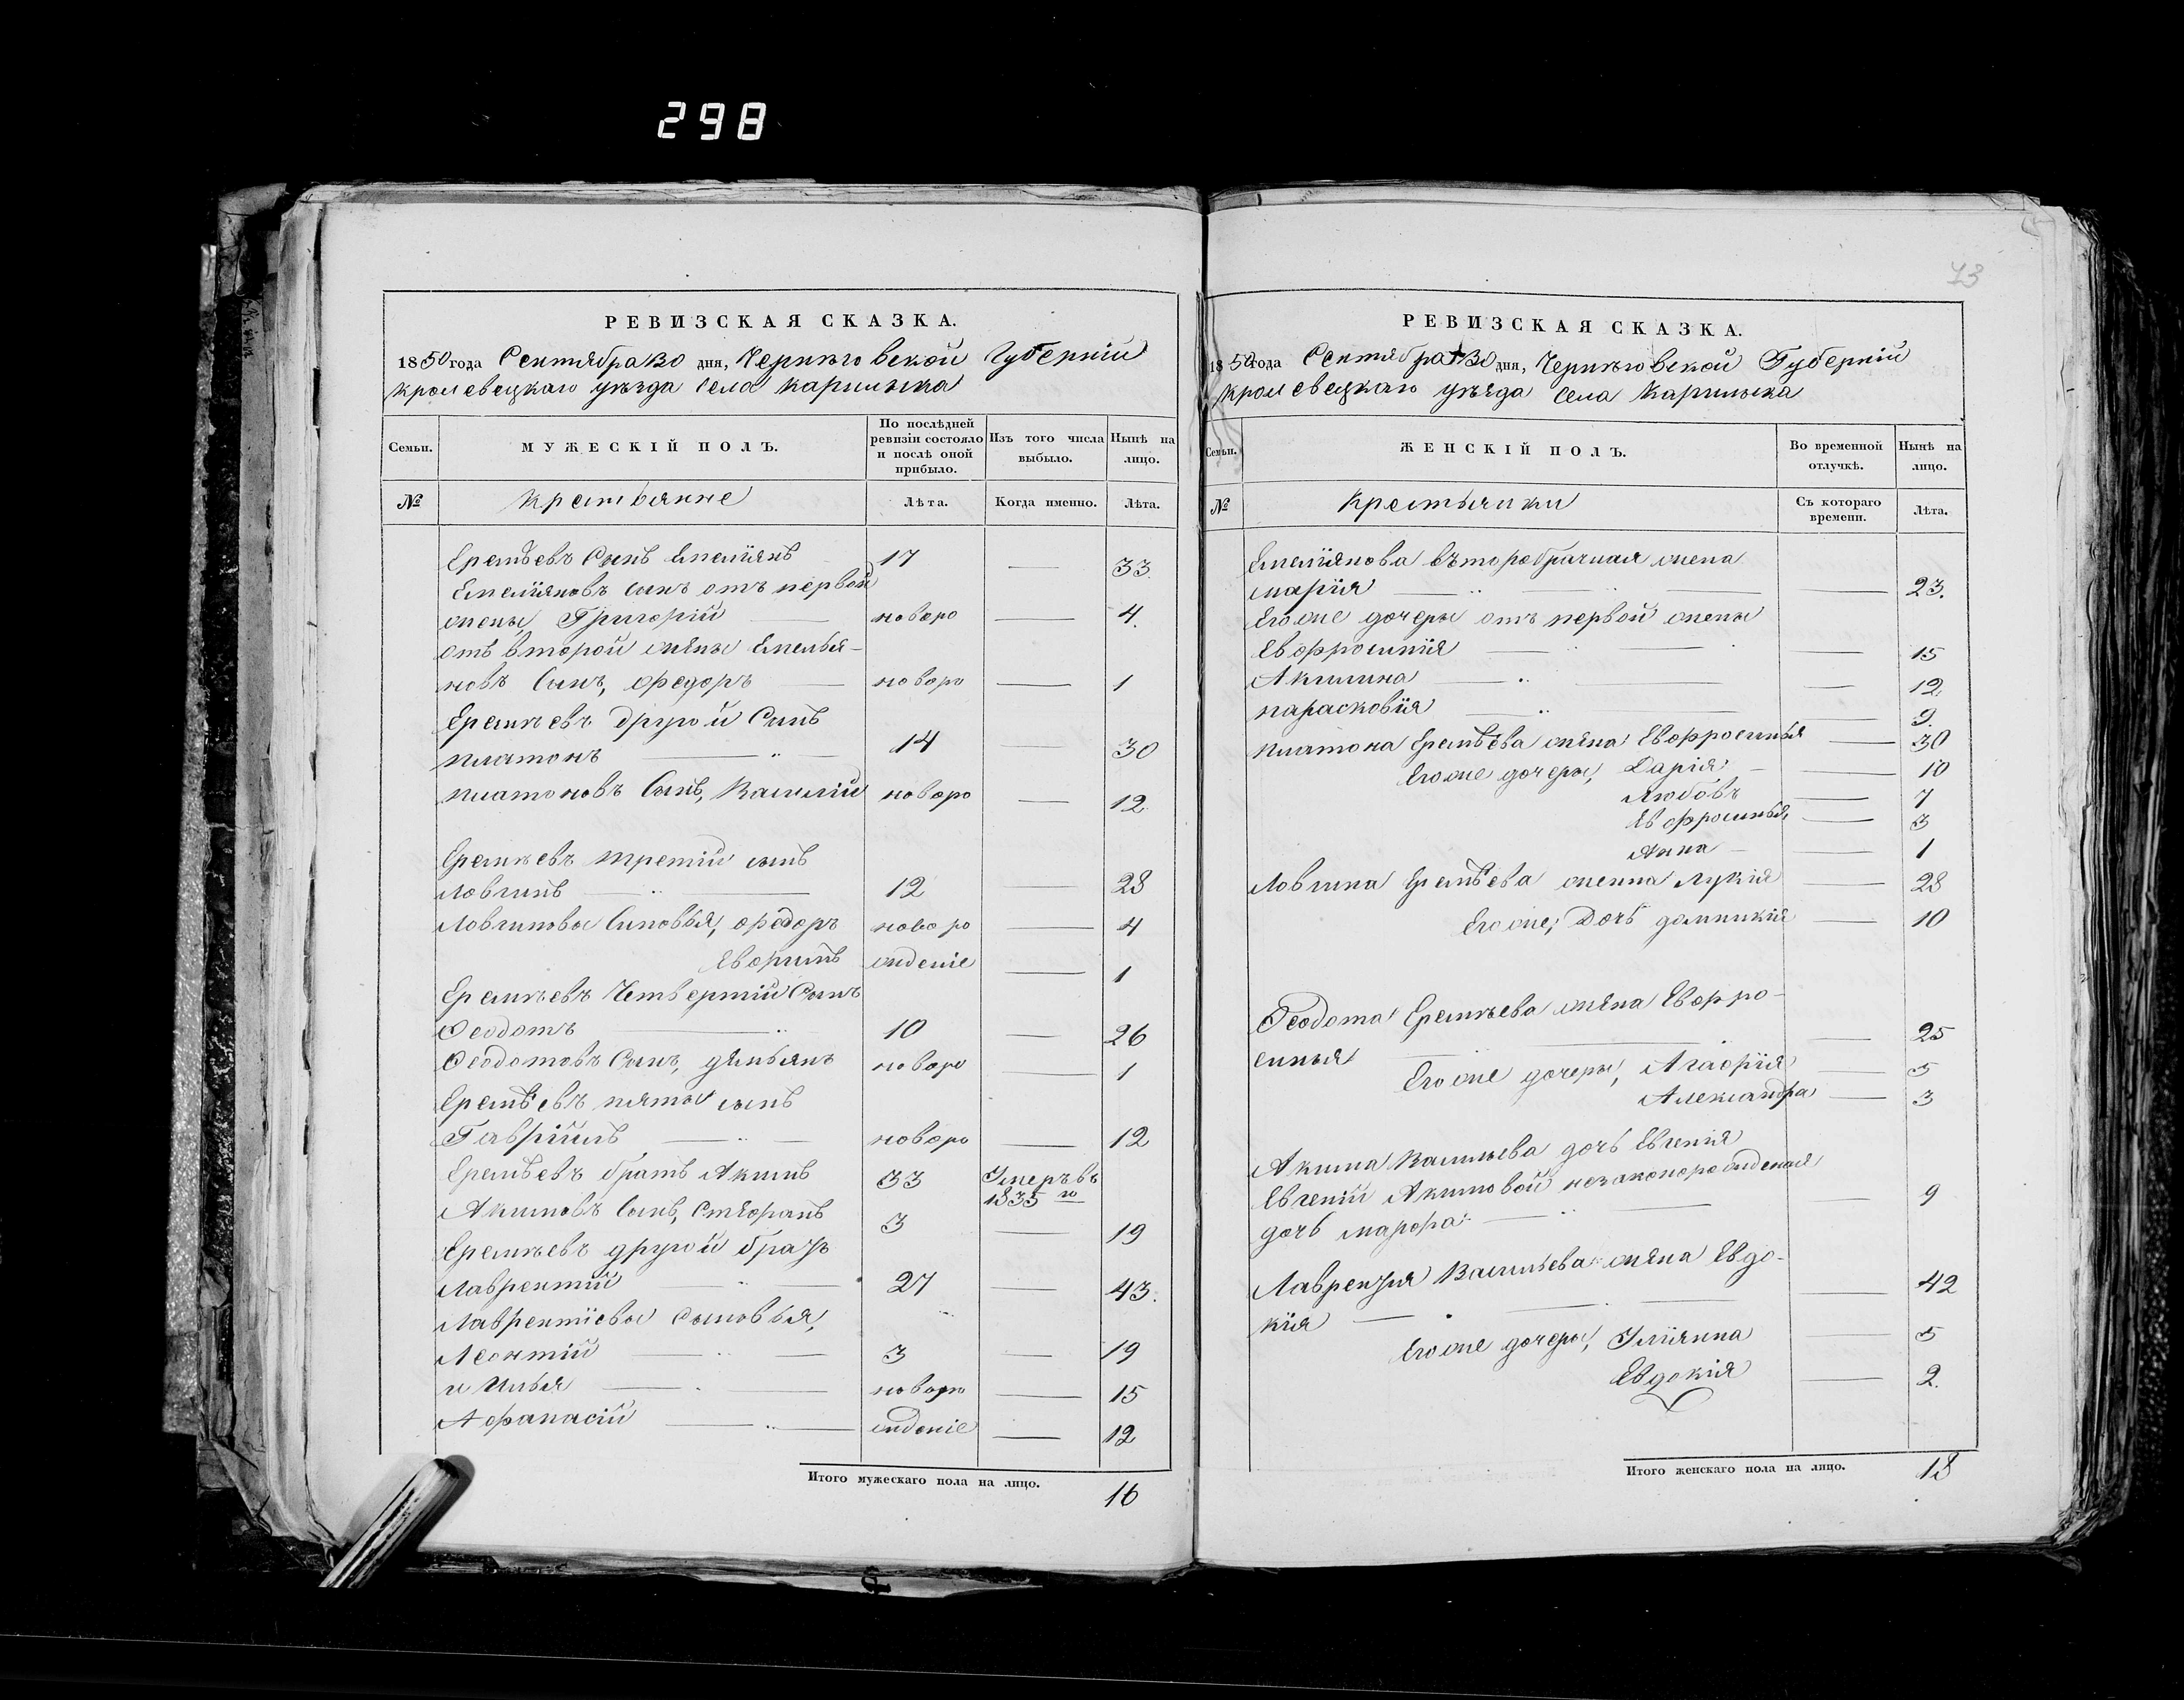 298
73
РЕВИЗСКАЯ СКАЗКА.
1850 года Сентября 30 дня, Черниговской Губерній
Кролевецкаго уѣзда Села Карилька
Семьи.
МУЖЕСКІЙ ПОЛЪ.
По послѣдней ревизіи состояло и послѣ оной прибыло.
Изъ того числа выбыло.
Нынѣ на лицо.
№
Крестьянне
Лѣта.
Когда именно.
Лѣта.
Еремѣевъ Сынъ Емеліянъ 17 — 33
Емеліяновъ сынъ отъ первой
жены Григорій — новоро — 4.
отъ второй жены Емелья-
новъ Сынъ, Федоръ — новоро — 1
Еремѣевъ другой Сынъ
Платонъ — 14 30
Платоновъ Сынъ, Василій новоро — 12
Еремѣевъ третій сынъ
Логинъ — 12 28
Логиновы Синовья, Федоръ новоро — 4
Евфимъ жденіе — 1
Еремѣевъ Четвертій Сынъ
Феодотъ — 10 — 26
Феодотовъ Сынъ, Демьянъ новоро — 1
Еремѣевъ пяты сынъ
Гавріилъ — новоро — 12
Еремѣевъ братъ Акимъ 33 Умеръ въ 1835 го
Акимовъ Сынъ, Стефанъ 3 — 19
Еремѣевъ другой братъ
Лаврентій — 27 — 43.
Лаврентіевы сыновья,
Леонтій — 3 — 19
и Илья — новоро — 15
Афанасій — жденіе — 12
Итого мужескаго пола на лицо. 16
РЕВИЗСКАЯ СКАЗКА.
1850 года Сентября 30 дня, Черниговской Губерній
Кролевецкаго уѣзда Села Карилька
Семьи.
ЖЕНСКІЙ ПОЛЪ.
Во временной отлучкѣ.
Нынѣ на лицо.
№
Крестьянки
Съ котораго времени.
Лѣта.
Емеліянова въторобрачная жена
Марія — — 23.
Егоже дочеры отъ первой жены
Евфросинія — — 15
Акилина — — 12
Парасковія — — 9.
Платона Еремѣева жена Евфросинья — 30
Егоже дочеры, Дарія — — 10
Любовъ — 7
Евфросинья — 3
Анна — — 1
Логина Еремѣева женна Лукія — 28
Егоже, Дочь Домникія — 10
Феодота Еремѣева жена Евфро-
синья — — 25
Егоже дочеры, Агафія — 5
Александра — 3
Акима Васильева дочь Евгенія
Евгеній Акимовой незаконорожденая
дочь Марфа — — 9
Лаврентія Васильева жена Евдо-
кія — — 42
Егоже дочеры, Уліянна — 5
Евдокія — 2.
Итого женскаго пола на лицо. 18